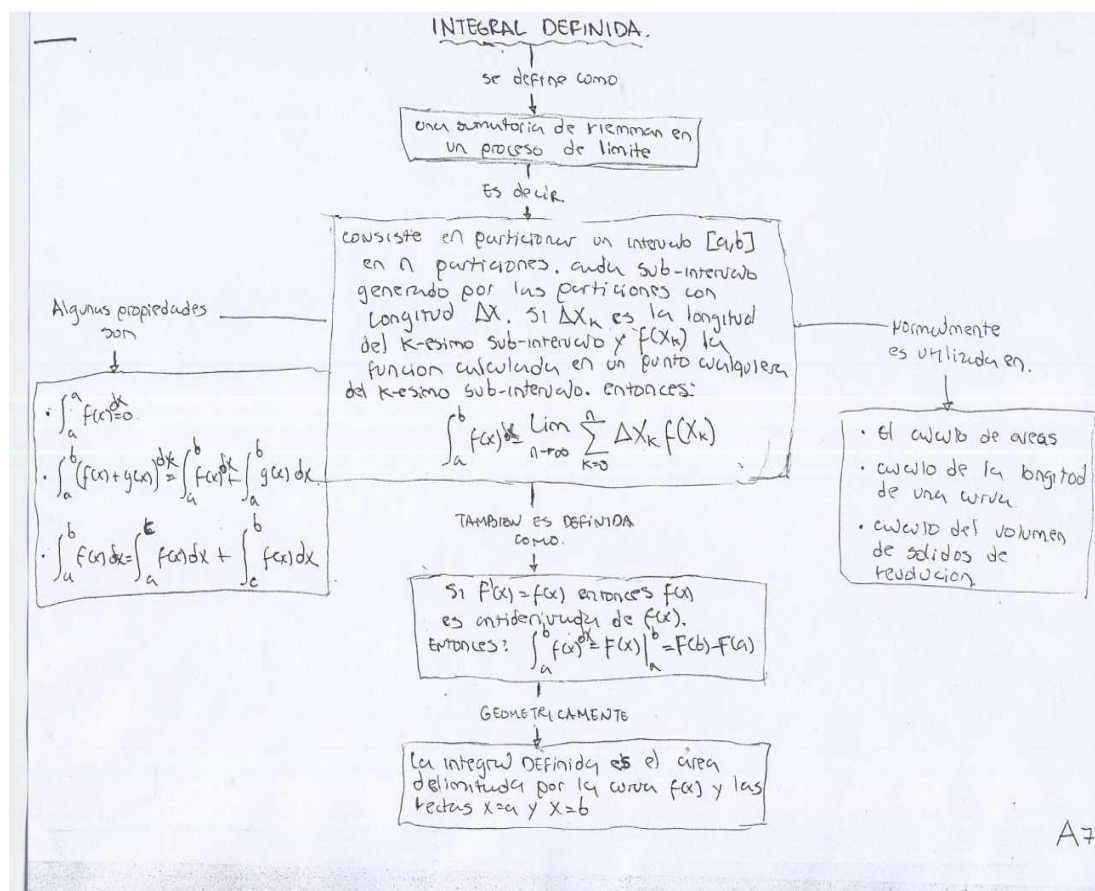 INTEGRAL DEFINIDA.
se define como
una sumatoria de riemman en
un proceso de limite
Es decir
consiste en particionar un intervalo [a,b]
en n particiones. cada sub-intervalo
generado por las particiones con
longitud ΔX. Si ΔX_K es la longitud
del K-esimo sub-intervalo y f(X_K) la
funcion calculada en un punto cualquiera
del k-esimo sub-intervalo. entonces:
∫_a^b f(x)dx = Lim_{n→∞} ∑_{k=0}^n ΔX_K f(X_K)
Algunas propiedades
son
• ∫_a^a f(x)dx=0
• ∫_a^b (f(x)+g(x))dx = ∫_a^b f(x)dx + ∫_a^b g(x) dx.
• ∫_a^b f(x)dx = ∫_a^c f(x)dx + ∫_c^b f(x)dx
Normalmente
es utilizada en.
• El calculo de areas
• calculo de la longitod
de una curva
• calculo del volumen
de solidos de
revolucion
TAMBIEN ES DEFINIDA
COMO.
Si F'(x) = f(x) entonces f(x)
es antiderivada de f(x).
Entonces: ∫_a^b f(x)dx = F(x)|_a^b = F(b)-F(a)
GEOMETRICAMENTE
La integral DEFinida es el área
delimitada por la curva f(x) y las
rectas x=a y x=b
A7